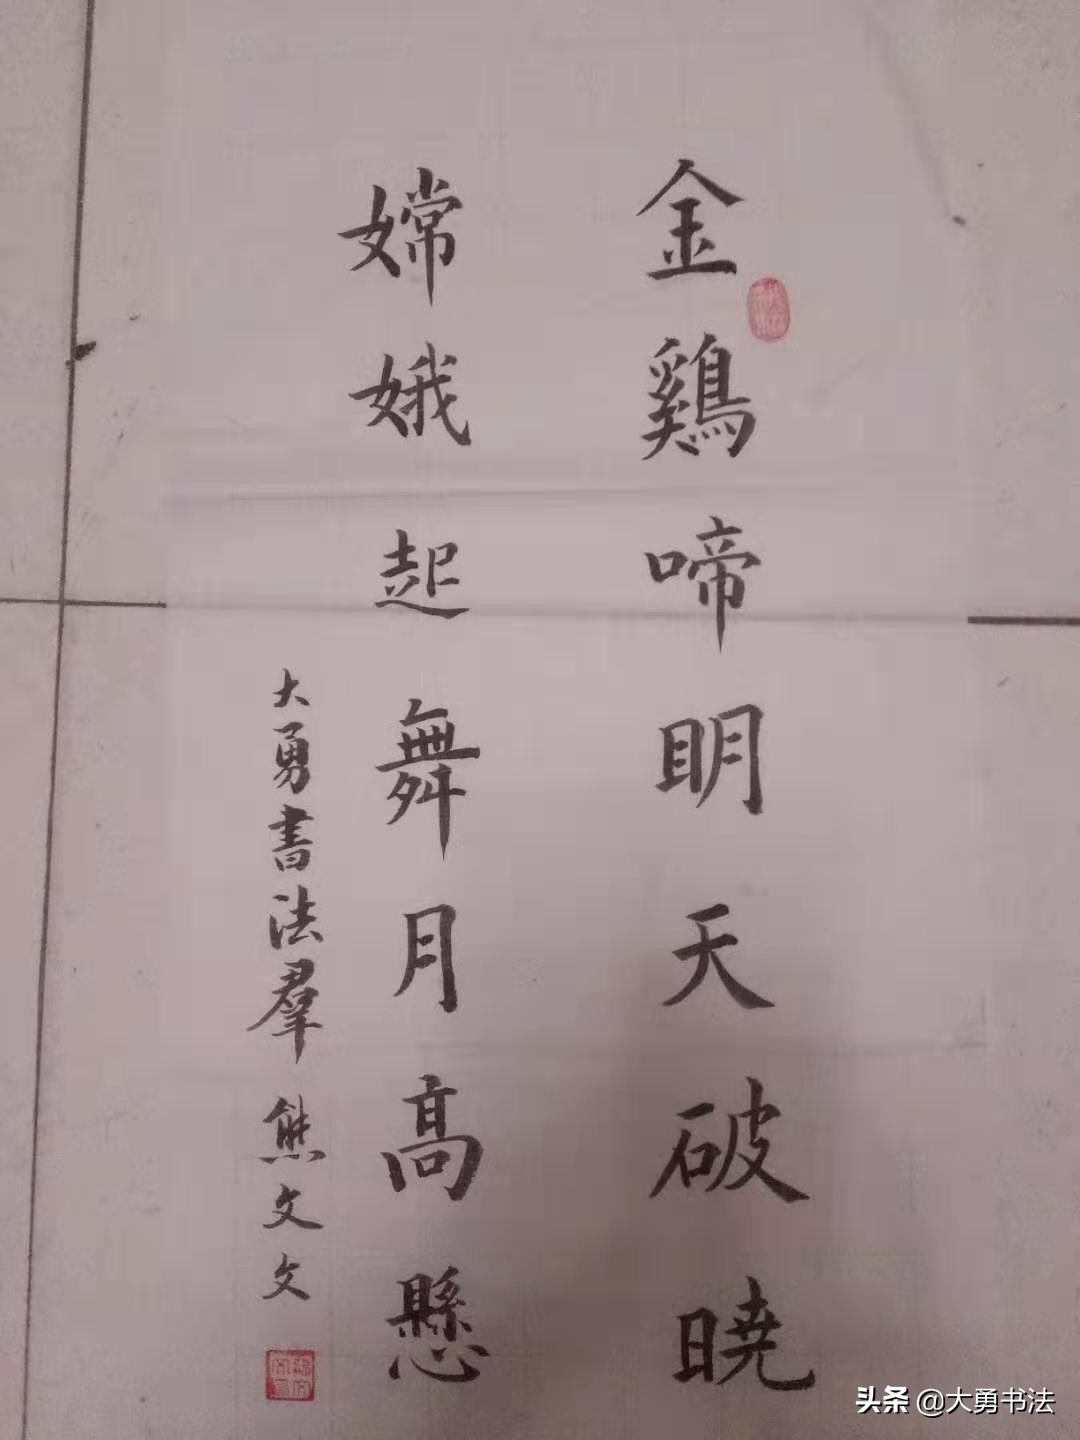 金鷄啼明天破曉
嫦娥起舞月高懸
大勇書法羣 熊文文
头条 @大勇书法